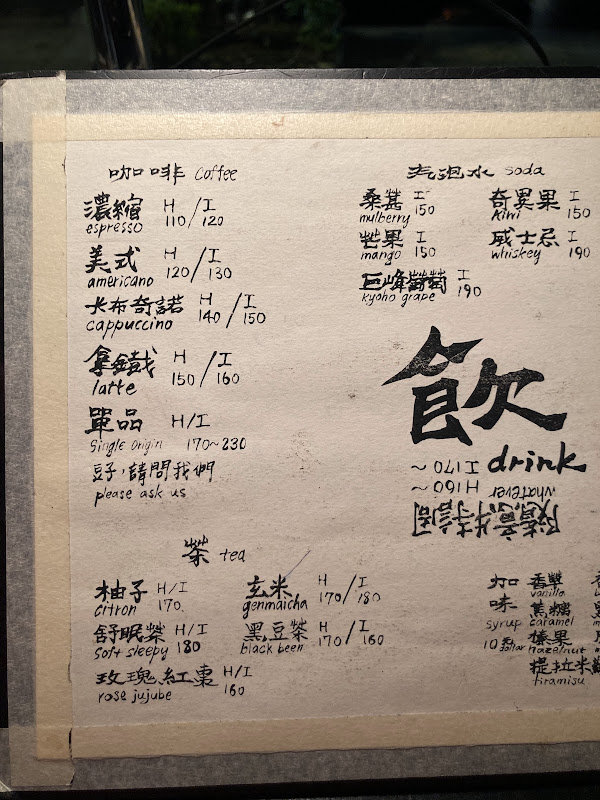 咖啡 coffee
濃縮 H / I
espresso 110 / 120
美式 H / I
americano 120 / 130
卡布奇諾 H / I
cappuccino 140 / 150
拿鐵 H / I
latte 150 / 160
單品 H/I
Single Origin 170~230
豆子,請問我們
please ask us
汽泡水 soda
桑葚 I
mulberry 150
奇異果 I
kiwi 150
芒果 I
mango 150
威士忌 I
whiskey 190
巨峰葡萄 I
kyoho grape 190
飲
drink
隨意特調
whatever
H 160 ~
I 170 ~
茶 tea
柚子 H/I
citron 170
玄米 H / I
genmaicha 170 / 180
舒眠茶 H/I
Soft sleepy 180
黑豆茶 H / I
black been 170 / 160
玫瑰紅棗 H/I
rose jujube 160
加味
syrup
10元 dollar
香草
vanilla
焦糖
caramel
榛果
hazelnut
提拉米蘇
tiramisu